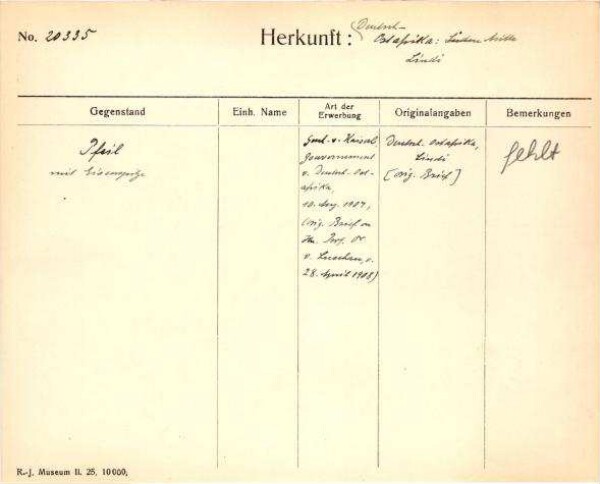 No. 20335
Herkunft: Deutsch-
Ostafrika: Süden Mitte
Lindi
Gegenstand
Einh. Name
Art der
Erwerbung
Originalangaben
Bemerkungen
Pfeil
mit Eisenspitze
v. Kaiserl.
Gouvernement
v. Deutsch. Ost-
afrika,
10. Aug. 1907,
(orig. Brief an
Hn. Prof. Dr.
v. Luschan, v.
28. April 1908)
Deutsch. Ostafrika,
Lindi
[orig. Brief]
fehlt
R.-J. Museum II. 25. 10000.